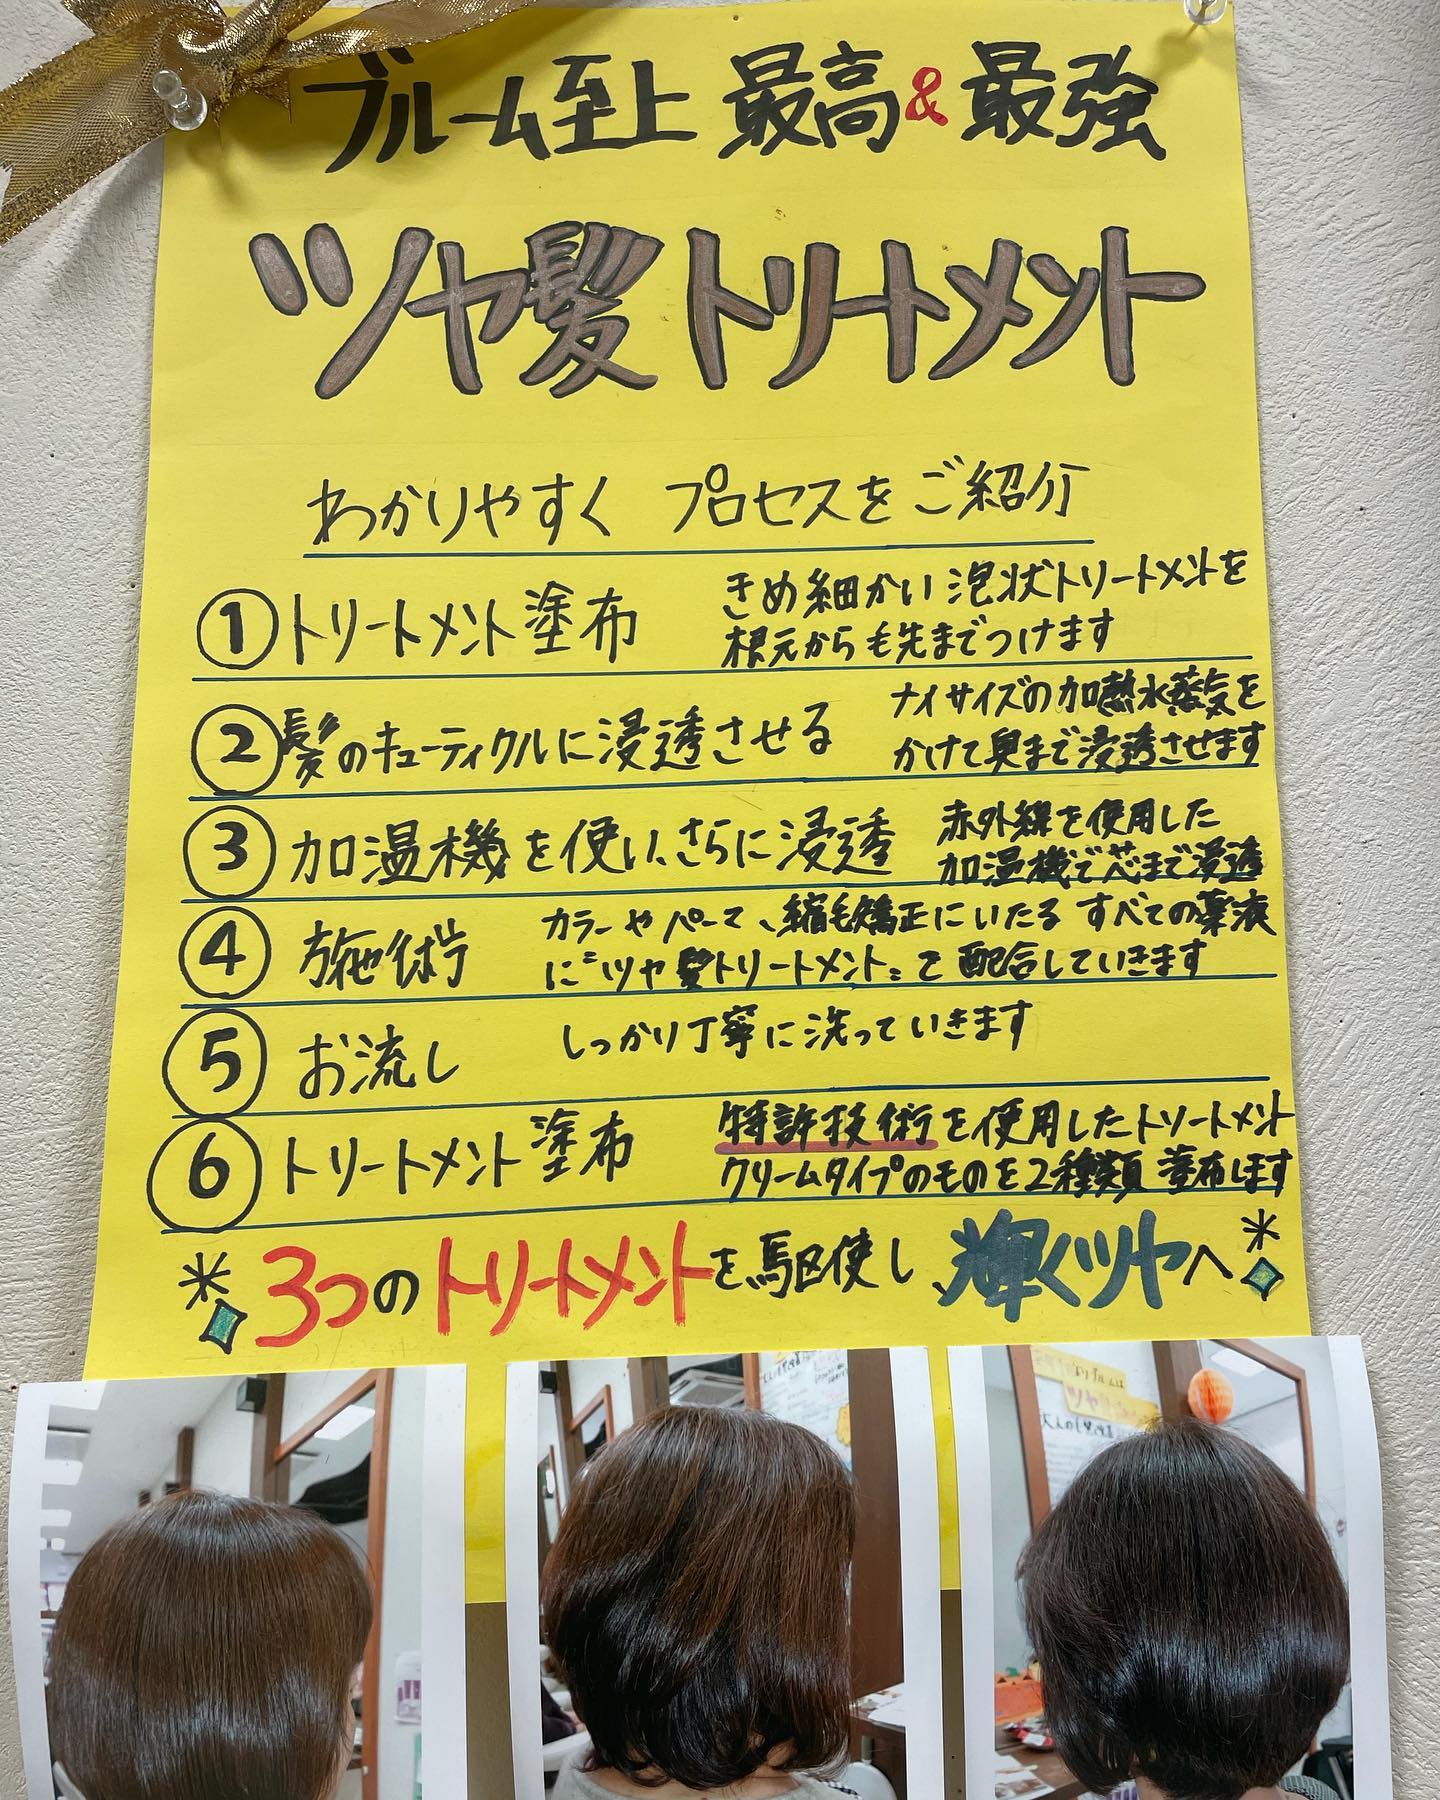 ブルーム至上 最高&最強
ツヤ髪トリートメント
わかりやすく プロセスをご紹介
① トリートメント塗布
きめ細かい泡状トリートメントを
根元から毛先までつけます
② 髪のキューティクルに浸透させる
ナイサイズの加熱水蒸気を
かけて奥まで浸透させます
③ 加温機を使い、さらに浸透
赤外線を使用した
加温機で芯まで浸透
④ 施術
カラーやパーマ、縮毛矯正にいたる すべての薬液
に"ツヤ髪トリートメント"を配合していきます
⑤ お流し
しっかり丁寧に洗っていきます
⑥ トリートメント塗布
特許技術を使用したトリートメント
クリームタイプのものを2種類 塗布します
3つのトリートメントを駆使し、輝くツヤへ